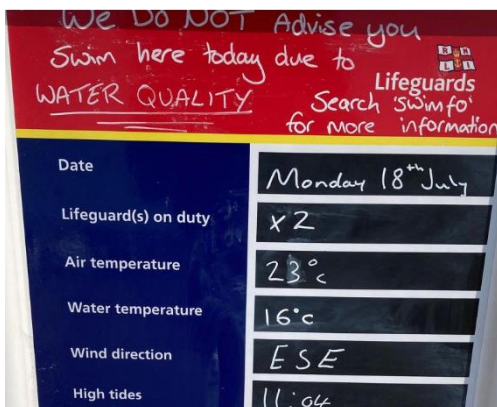 We Do NOT Advise you
Swim here today due to
WATER QUALITY
RNLI
Lifeguards
Search 'swimfo'
for more information
Date Monday 18th July
Lifeguard(s) on duty x2
Air temperature 23°c
Water temperature 16°c
Wind direction ESE
High tides 11:04